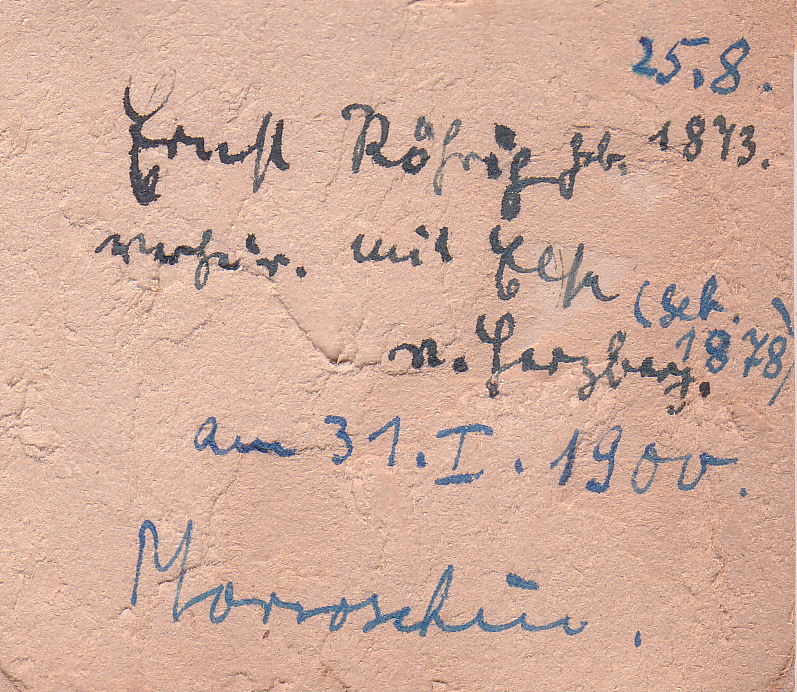 25.8.
Ernst Röhrig geb. 1873.
verheir. mit Else
(geb.
v. Herzberg. 1878)
am 31. I. 1900.